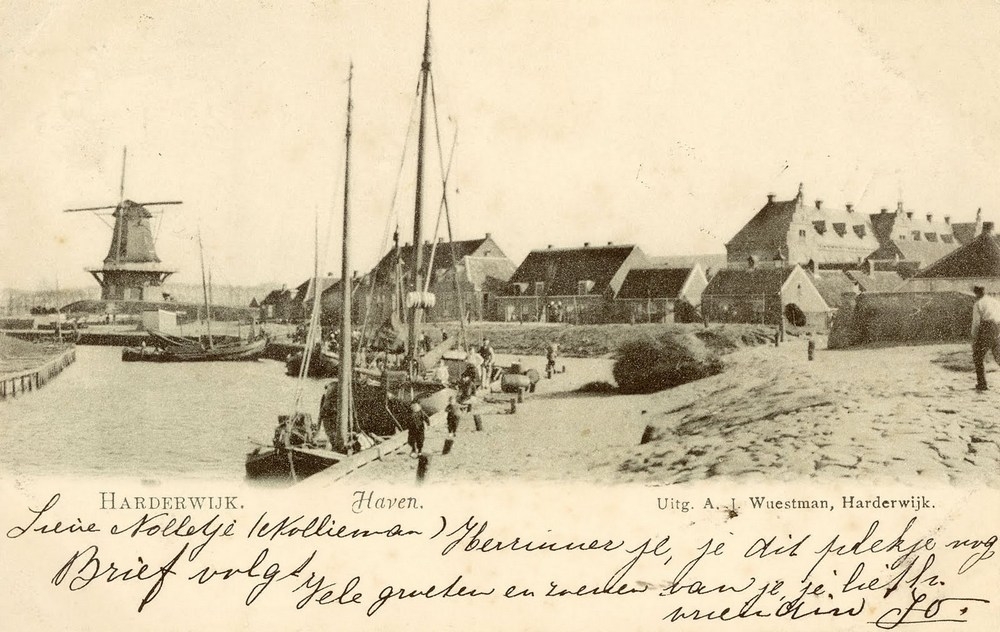 HARDERWIJK. Haven. Uitg. A. J. Wuestman, Harderwijk.
Lieve Nolletje (Nollieman) Herrinner je, je dit plekje nog
Brief volgt Vele groeten en zoenen van je, je liefh.
vriendin Jo.